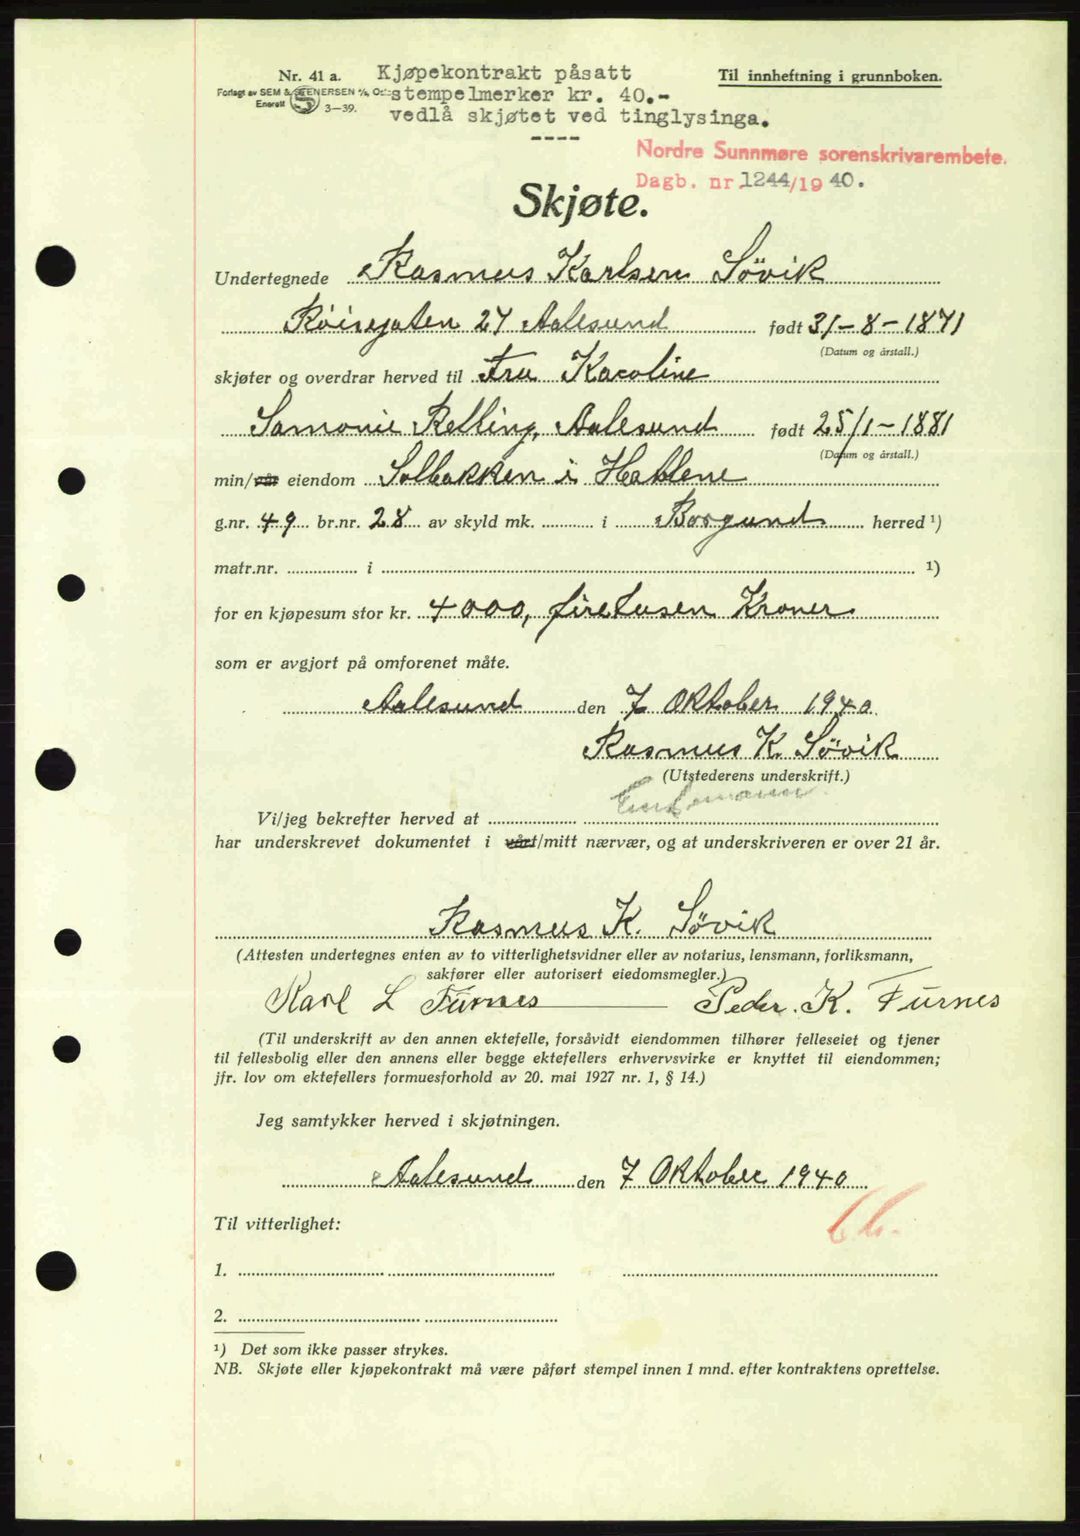 Nr. 41 a.
Kjøpekontrakt påsatt
Til innheftning i grunnboken.
Forlagt av SEM & STENERSEN A/S, Oslo
stempelmerker kr. 40.-
Enerett 3—39.
vedlå skjøtet ved tinglysinga.
----
Nordre Sunnmøre sorenskrivarembete.
Dagb. nr 1244/19 40.
Skjøte.
Undertegnede Rasmus Karlsen Søvik
Røisegaten 27 Aalesund født 31-8-1871
(Datum og årstall.)
skjøter og overdrar herved til Fru Karoline
Samonie Relling, Aalesund født 25/1-1881
(Datum og årstall.)
min/vår eiendom Solbakken i Hatlene
g.nr. 49 br.nr. 28 av skyld mk. i Borgund herred ¹)
matr.nr. i ¹)
for en kjøpesum stor kr. 4000, firetusen Kroner
som er avgjort på omforenet måte.
Aalesund den 7 Oktober 1940
Rasmus K. Søvik
(Utstederens underskrift.)
Enkemann
Vi/jeg bekrefter herved at
har underskrevet dokumentet i vårt/mitt nærvær, og at underskriveren er over 21 år.
Rasmus K. Søvik
(Attesten undertegnes enten av to vitterlighetsvidner eller av notarius, lensmann, forliksmann,
sakfører eller autorisert eiedomsmegler.)
Karl L Furnes Peder. K. Furnes
(Til underskrift av den annen ektefelle, forsåvidt eiendommen tilhører felleseiet og tjener
til fellesbolig eller den annens eller begge ektefellers erhvervsvirke er knyttet til eiendommen;
jfr. lov om ektefellers formuesforhold av 20. mai 1927 nr. 1, § 14.)
Jeg samtykker herved i skjøtningen.
Aalesund den 7 Oktober 1940
Til vitterlighet:
1.
2.
¹) Det som ikke passer strykes.
NB. Skjøte eller kjøpekontrakt må være påført stempel innen 1 mnd. efter kontraktens oprettelse.